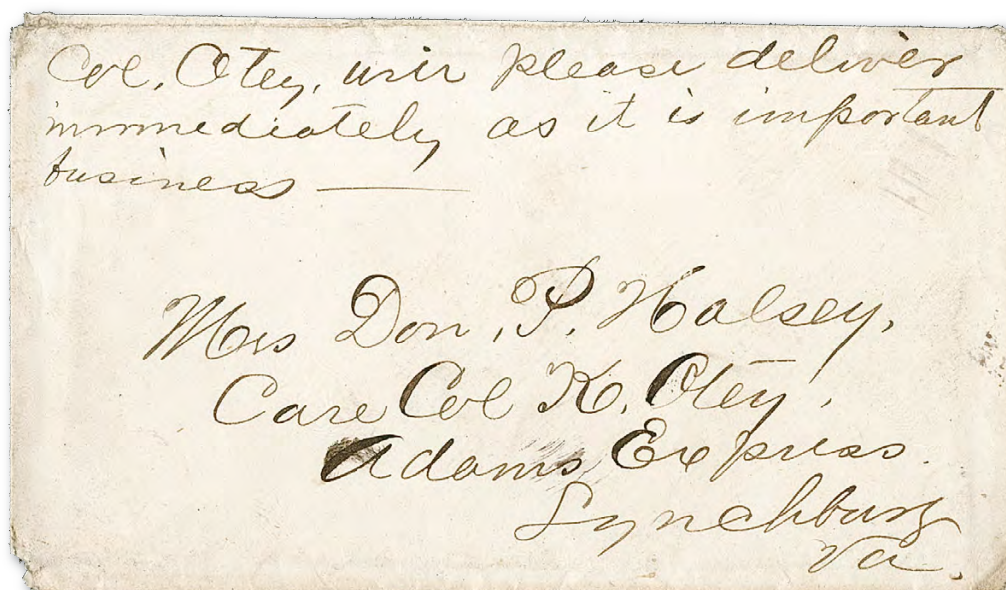 Col. Otey, will please deliver
immediately as it is important
business —
Mrs Don. P. Halsey,
Care Col K. Otey,
Adams Express
Lynchburg
Va.